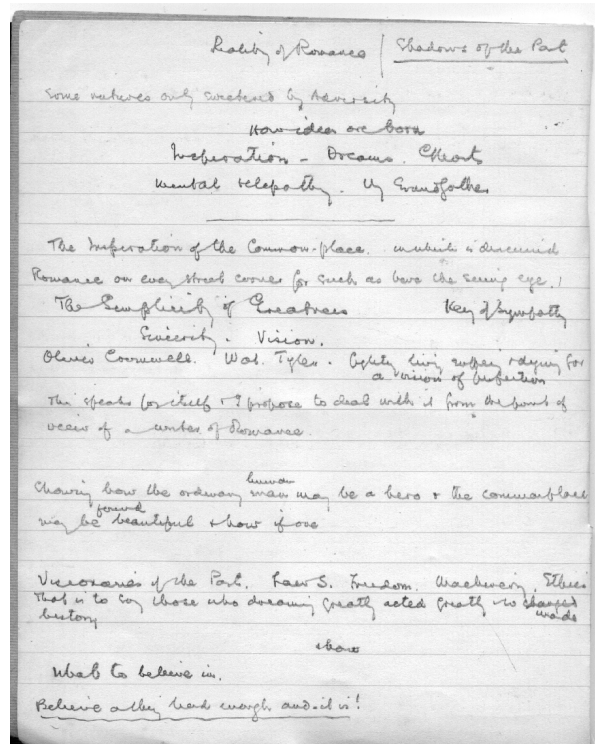 Reality of Romance / Shadows of the Past
Some natures only sweetened by Adversity
How ideas are born
Inspiration - Dreams. Efforts
mental telepathy. My Grandfather
The Inspiration of the Common-place. in which is discussed
Romance on every street corner for such as have the seeing eye!
The Simplicity of Greatness Key of Sympathy
Sincerity. Vision.
Oliver Cromwell. Wat. Tyler. fighting living suffering & dying for
a vision of perfection
This speaks for itself & I propose to deal with it from the point of
veiw of a writer of Romance.
human
Showing how the ordinary man may be a hero & the commonplace
found
may be beautiful & how if one
Visionaries of the Past. Laws. Freedom. Machinery, Ethics
That is to say those who dreaming greatly acted greatly & so changed
made
history
& how
What to believe in.
Believe a thing hard enough and - it is!